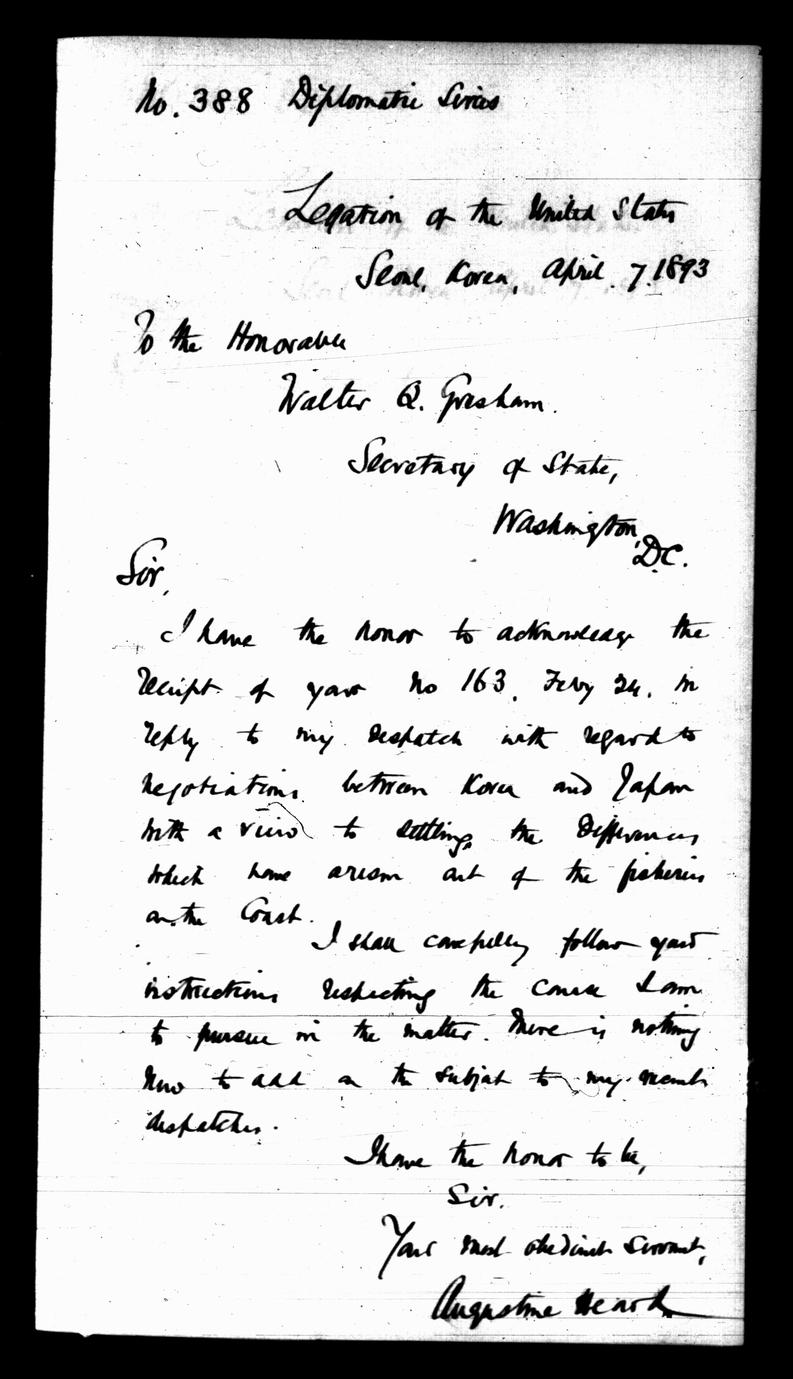 No. 388 Diplomatic Series
Legation of the United States
Seoul, Korea, April 7. 1893
To the Honorable
Walter Q. Gresham.
Secretary of State,
Washington,
D.C.
Sir,
I have the honor to acknowledge the
receipt of your No 163, Feby 24. in
reply to my despatch with regard to
negotiations between Korea and Japan
with a view to settling the differences
which have arisen out of the fisheries
on the Coast.
I shall carefully follow your
instructions respecting the course I am
to pursue in the matter. There is nothing
new to add on the subject to my recent
dispatches.
I have the honor to be,
Sir.
Your most obedient servant,
Augustine Heard